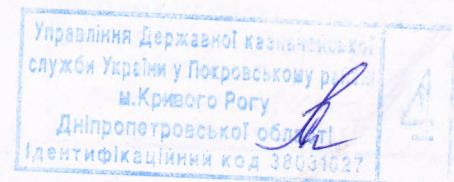 Управління Державної казначейської
служби України у Покровському районі
м.Кривого Рогу
Дніпропетровської області
Ідентифікаційний код 38031027